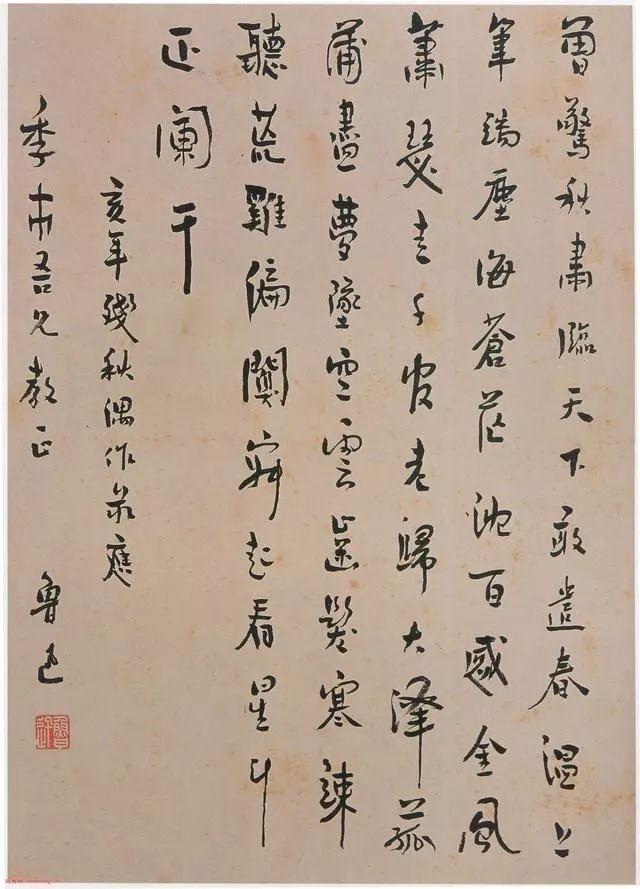 曾驚秋肅臨天下敢遣春溫上
筆端塵海蒼茫沈百感金風
蕭瑟走千官老歸大澤菰
蒲盡夢墜空雲齒髮寒竦
聽荒雞偏闃寂起看星斗
正闌干
亥年殘秋偶作录應
季巿吾兄教正
魯迅
魯迅